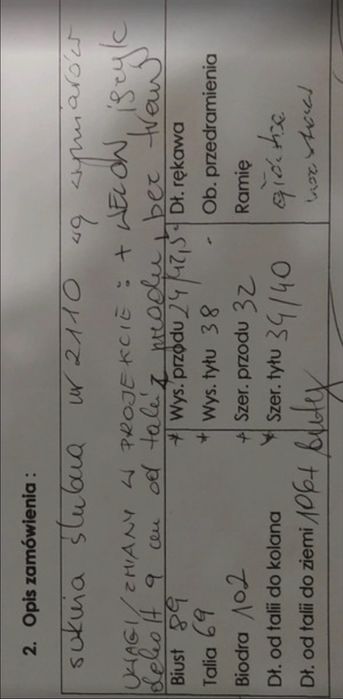 2. Opis zamówienia :
suknia ślubna nr 2110 wg wymiarów
UWAGI/ZMIANY W PROJEKCIE : + WELON język
dekolt 9 cm od talii z przodu, bez trenu
Biust 89 * Wys. przodu 24/42,5 Dł. rękawa
Talia 69 * Wys. tyłu 38 - Ob. przedramienia
Biodra 102 * Szer. przodu 32 Ramię
Dł. od talii do kolana * Szer. tyłu 34/40
Dł. od talii do ziemi 106+ buty